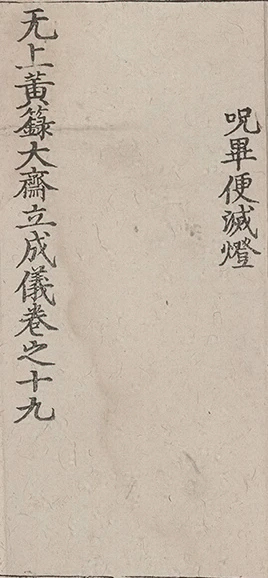 呪畢便滅燈
无上黃籙大齋立成儀卷之十九